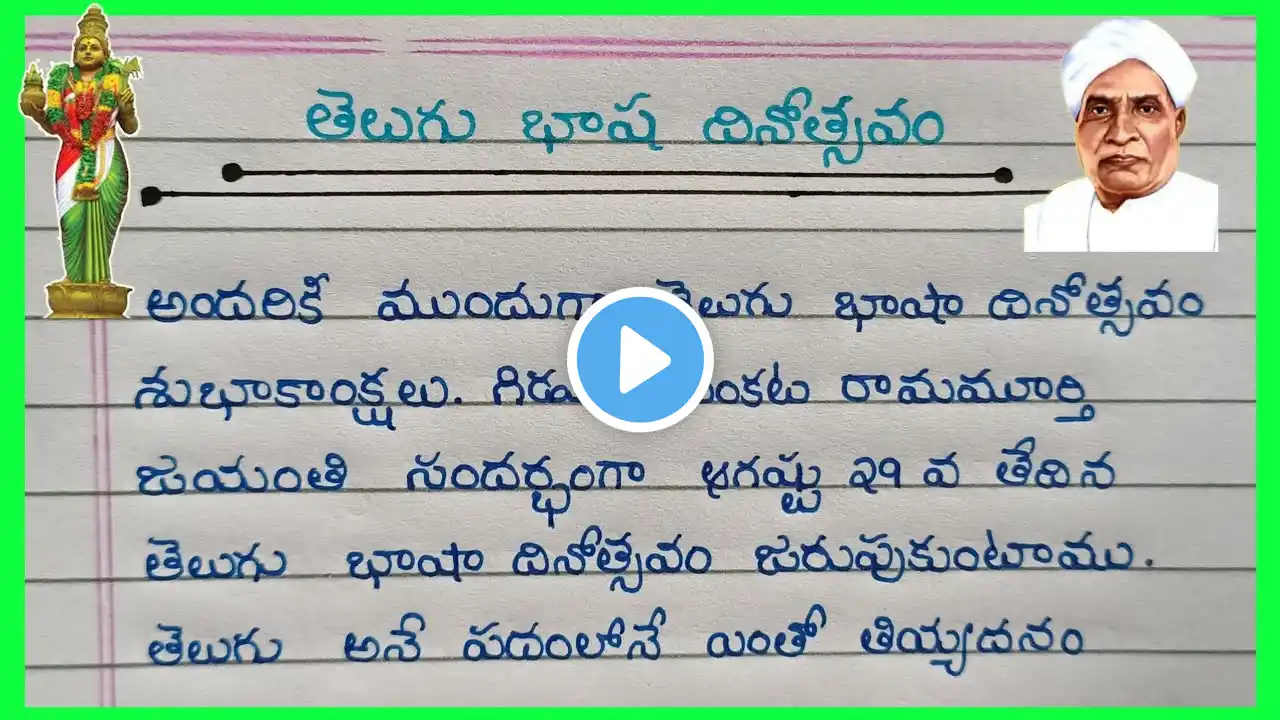 తెలుగు భాష దినోత్సవం
అందరికీ ముందుగా తెలుగు భాషా దినోత్సవం
శుభాకాంక్షలు. రామమూర్తి
జయంతి సందర్భంగా ఆగష్టు ౨౧ వ తేదిన
తెలుగు భాషా దినోత్సవం జరుపుకుంటాము.
తెలుగు అనే పదంలోనే యింతో తియ్యదనం